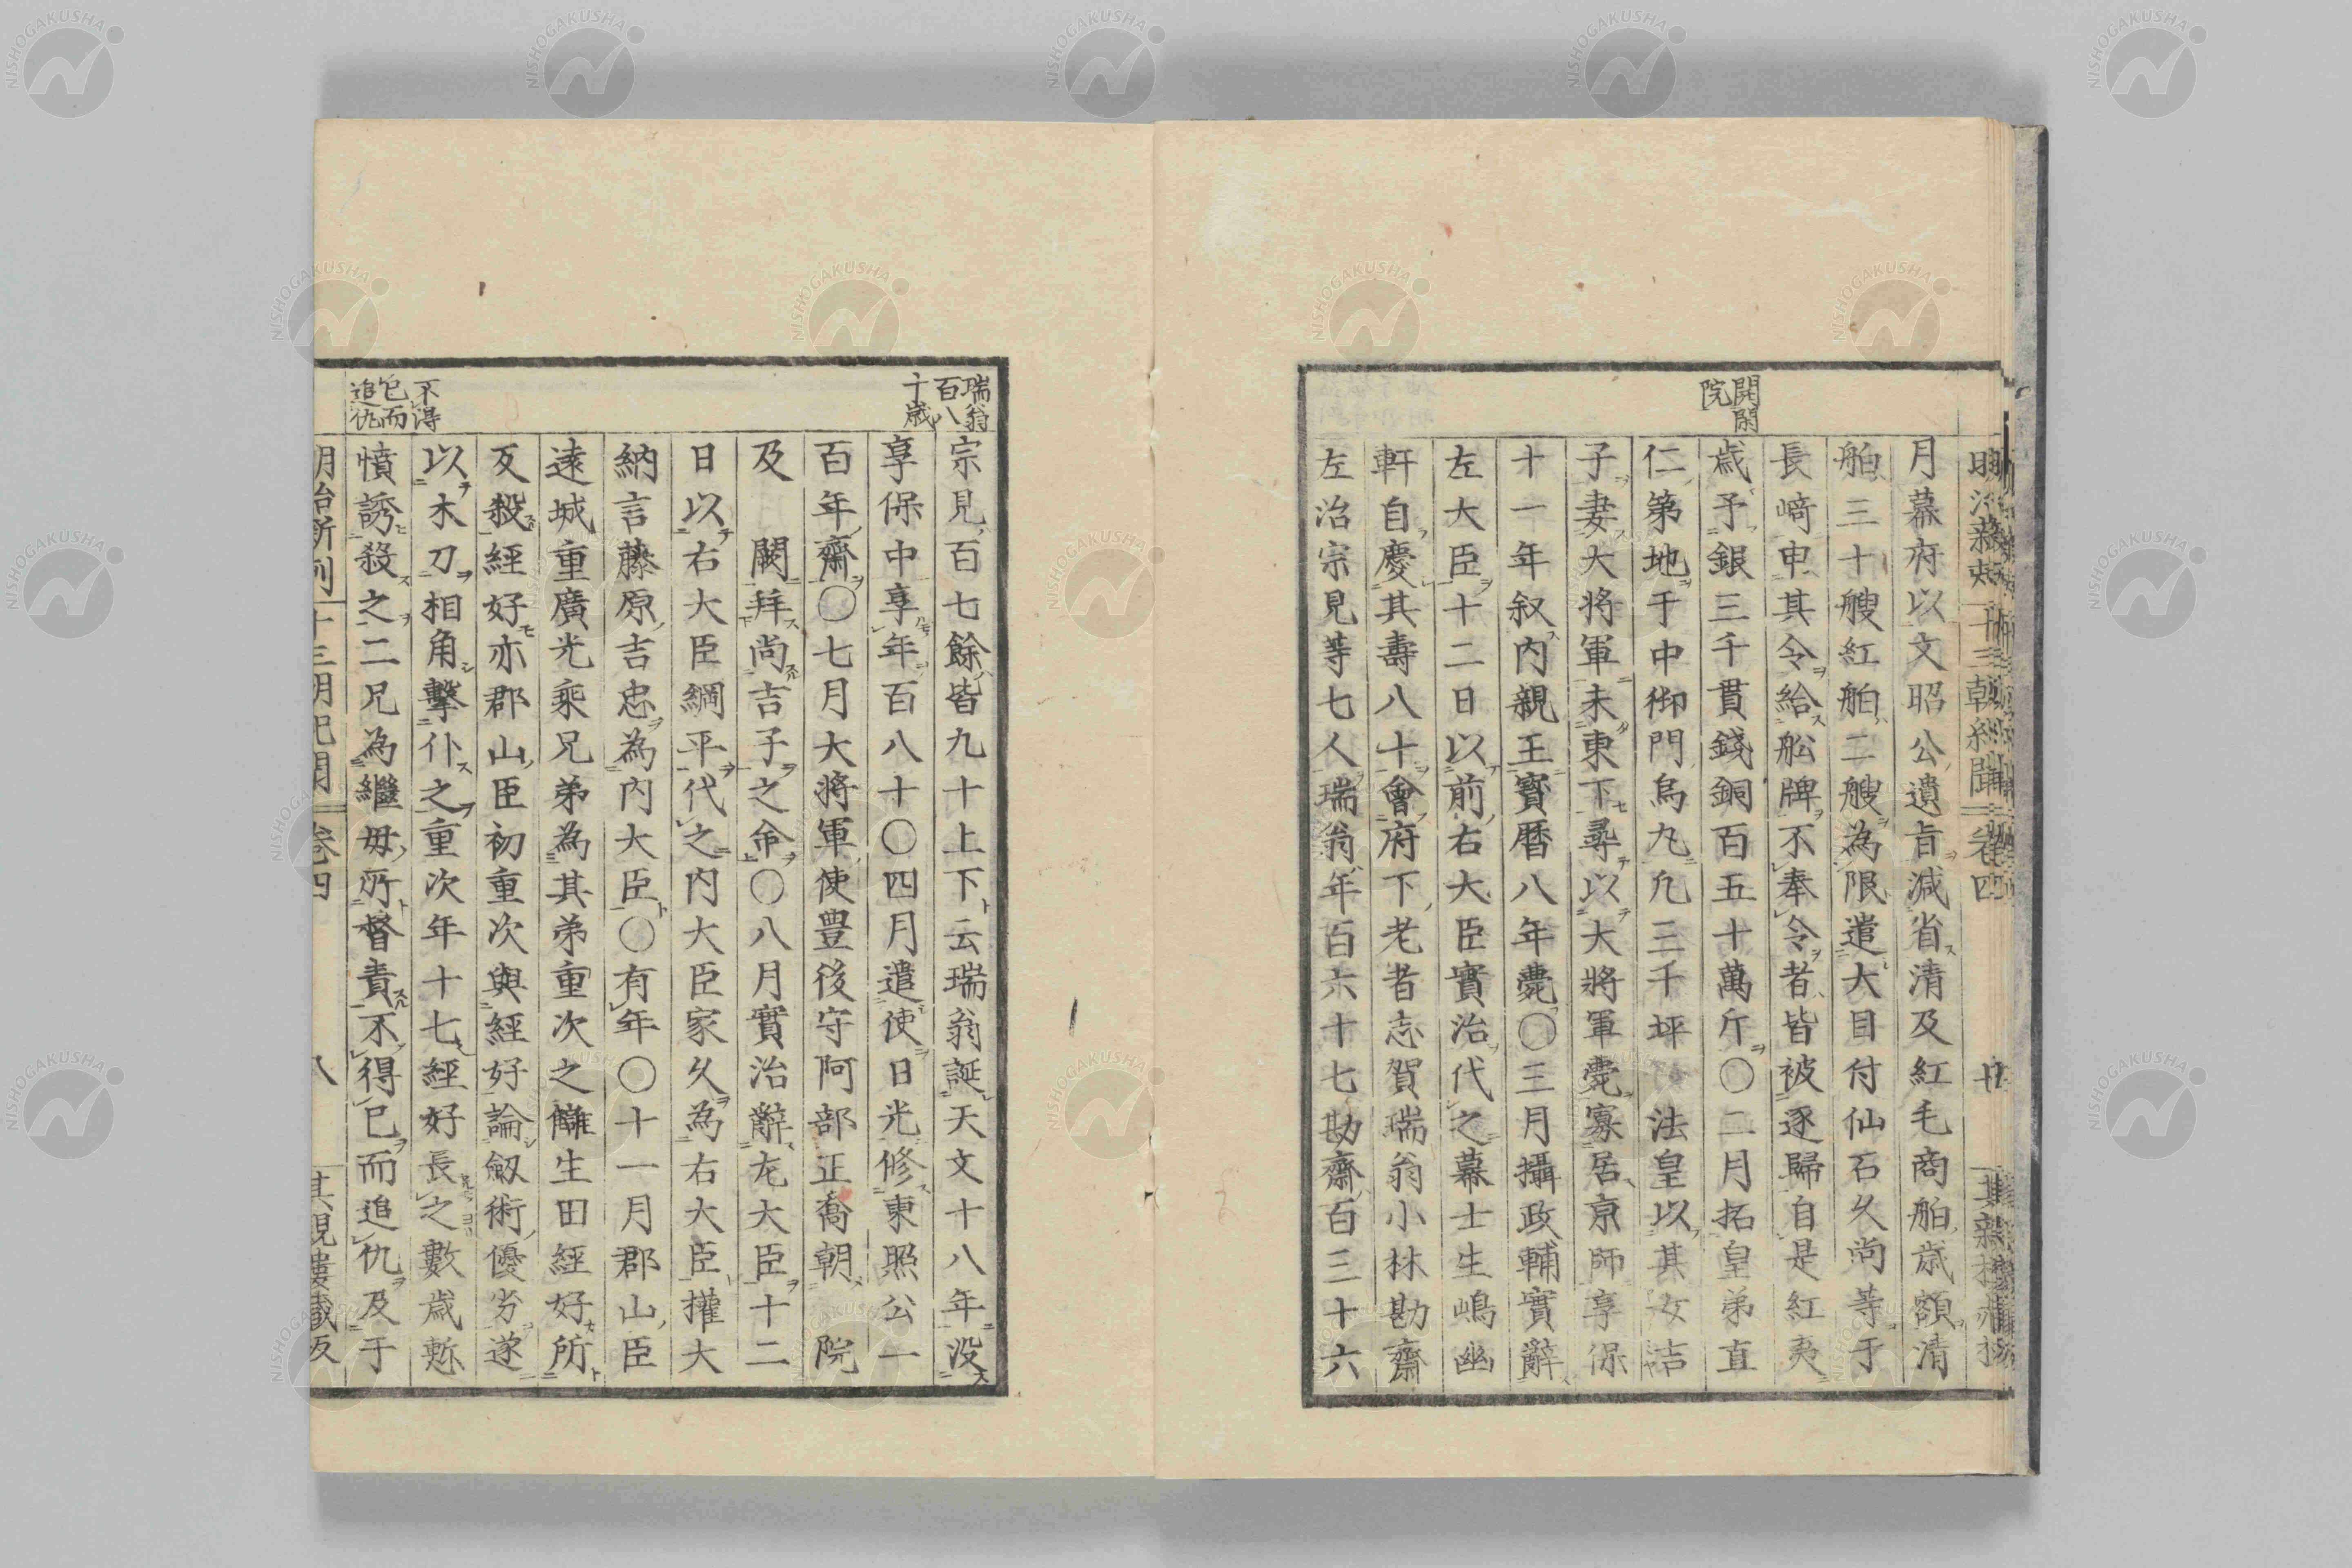 開閑
院
月幕府以文昭公遺旨減省清及紅毛商舶歳額清
舶三十艘紅舶二艘為限遣大目付仙石久尚等于
長﨑申其令給舩牌不奉令者皆被逐歸自是紅夷
歳予銀三千貫錢銅百五十萬斤〇二月拓皇弟直
仁第地于中御門烏丸凢三千坪 法皇以其女吉
子妻大將軍未東下尋以大將軍薨寡居京師享保
十一年叙内親王寳暦八年薨〇三月攝政輔實辭
左大臣十二日以前右大臣實治代之幕士生嶋幽
軒自慶其壽八十會府下老者志賀瑞翁小林勘齋
左治宗見等七人瑞翁年百六十七勘齋百三十六
瑞翁
百八
十歳
宗見百七餘皆九十上下云瑞翁誕天文十八年没
享保中享年百八十〇四月遣使日光修東照公一
百年齋〇七月大將軍使豊後守阿部正喬朝 院
及 闕拜尚吉子之命〇八月實治辭左大臣十二
日以右大臣綱平代之内大臣家久為右大臣權大
納言藤原吉忠為内大臣〇有年〇十一月郡山臣
遠城重廣光乘兄弟為其弟重次之讎生田經好所
反殺經好亦郡山臣初重次與經好論劔術優劣遂
以木刀相角擊仆之重次年十七經好長之數歳慙
憤誘殺之二兄為繼母所督責不得已而追仇及于
不得
已而
追仇
明治新刻 十三朝紀聞 卷四 八 其親樓藏版